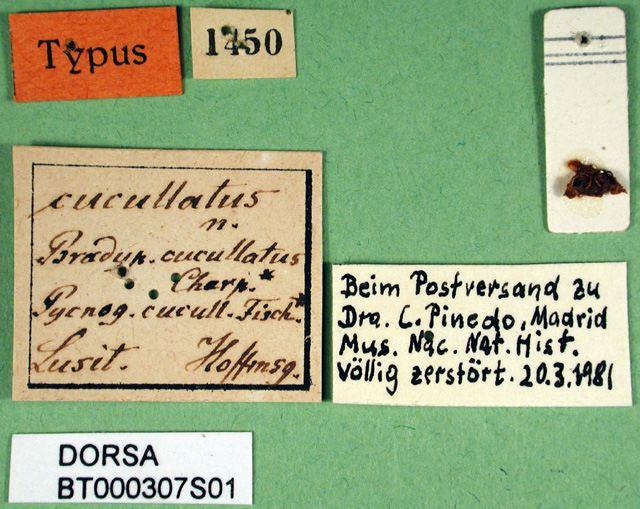 Typus
1450
cucullatus
n.
Bradyp. cucullatus
Charp.*
Pycnog. cucull. Fisch.*
Lusit. Hoffmsg.
Beim Postversand zu
Dra. C. Pinedo, Madrid
Mus. Nac. Nat. Hist.
völlig zerstört. 20.3.1981
DORSA
BT000307S01